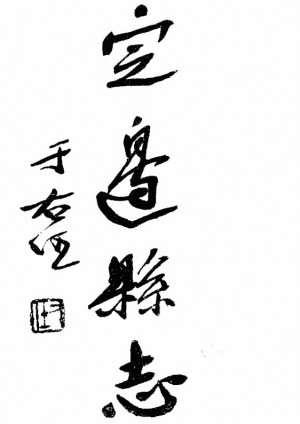 定邊縣志
于右任